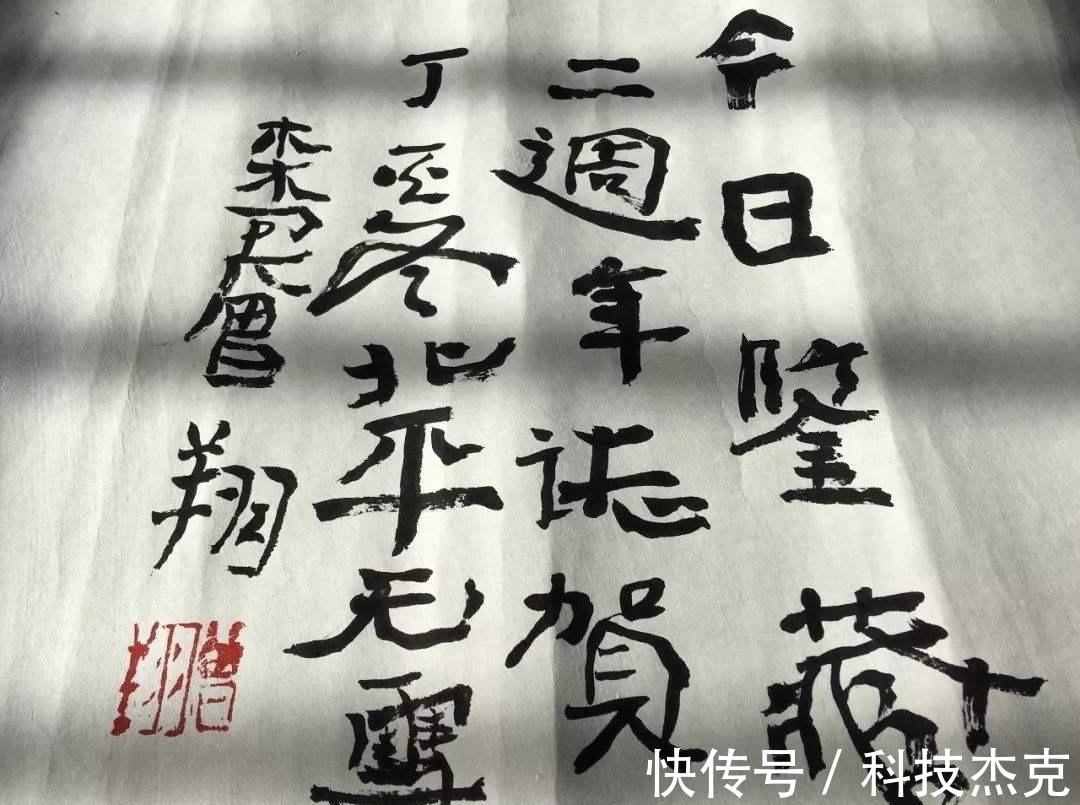 今日鑒藏
二週年誌賀
丁酉冬北平无雪
曾翔
曾翔
快传号 / 科技杰克